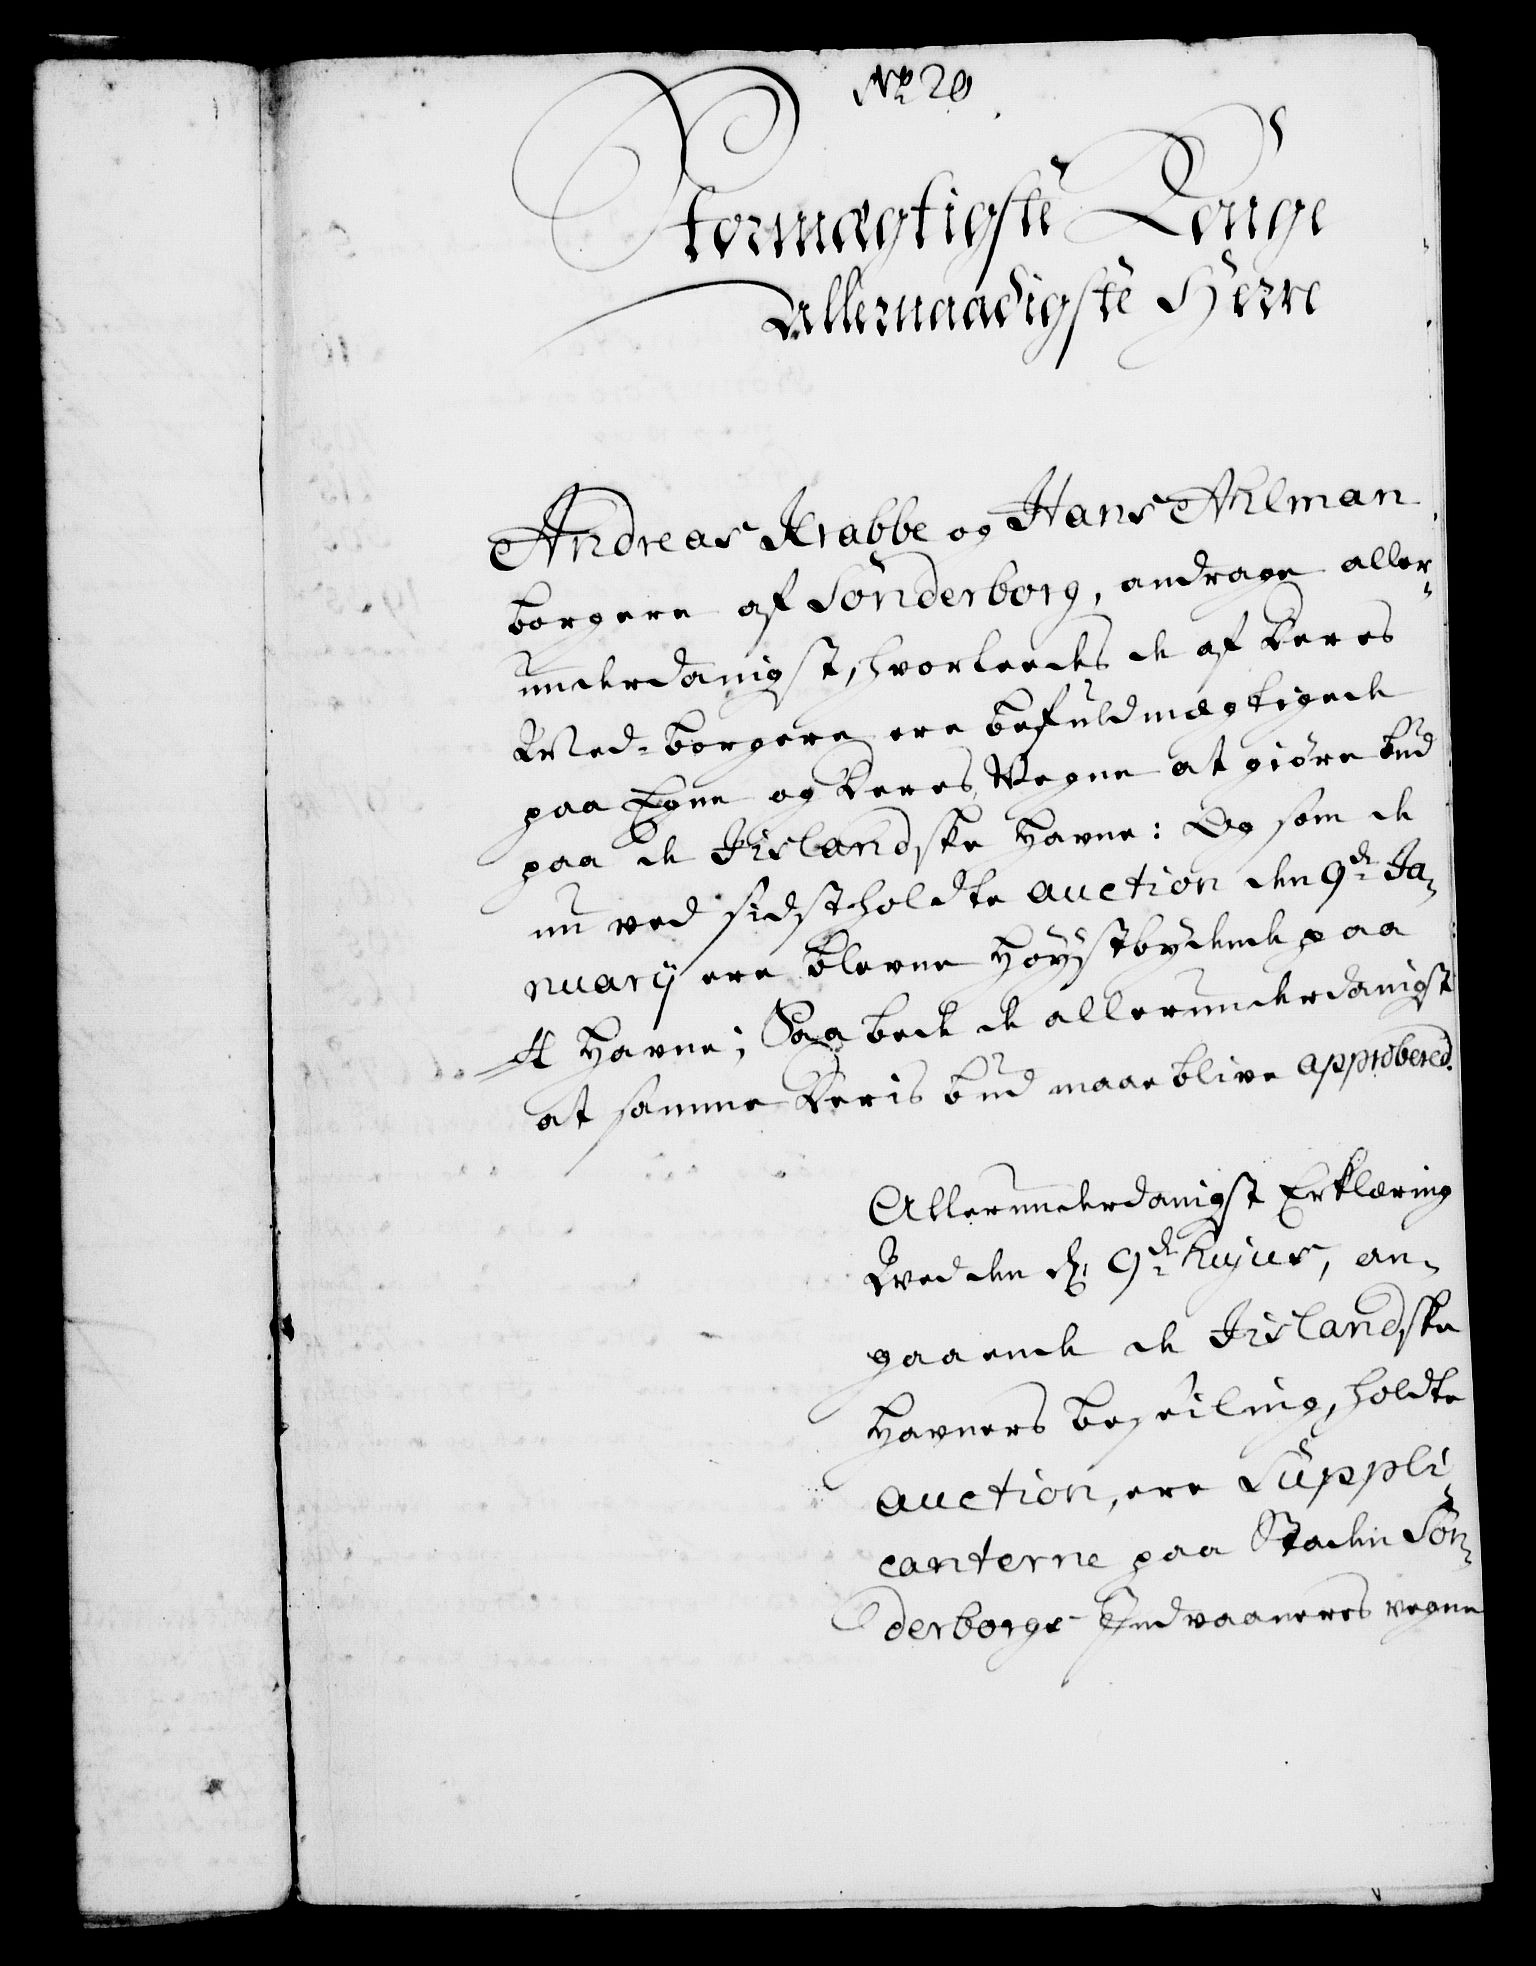 No 20
Stormægtigste Konge
Allernaadigste Herre
Andreas Krabbe og Hans Ahlman
borgere af Sonderborg, andrage aller-
underdanigst, hvorleedes de af deres
Med-borgere ere befuldmægtigede
paa Egne og deres Vegne at giöre bud
paa de Iislandske Havne: Og som de
nu ved sidstholdte auction den 9de Ja-
nuarij ere blevne Höystbydende paa
4 Havne; Saa bede de allerunderdanigst
at samme deris bud maae blive approbered.
Allerunderdanigst Erklæring
Ved den d. 9de hujus, an-
gaaende de Iislandske
Havners beseiling, holdte
auction, ere Suppli-
canterne paa Staden Son-
derborgs Indvaaneres vegne